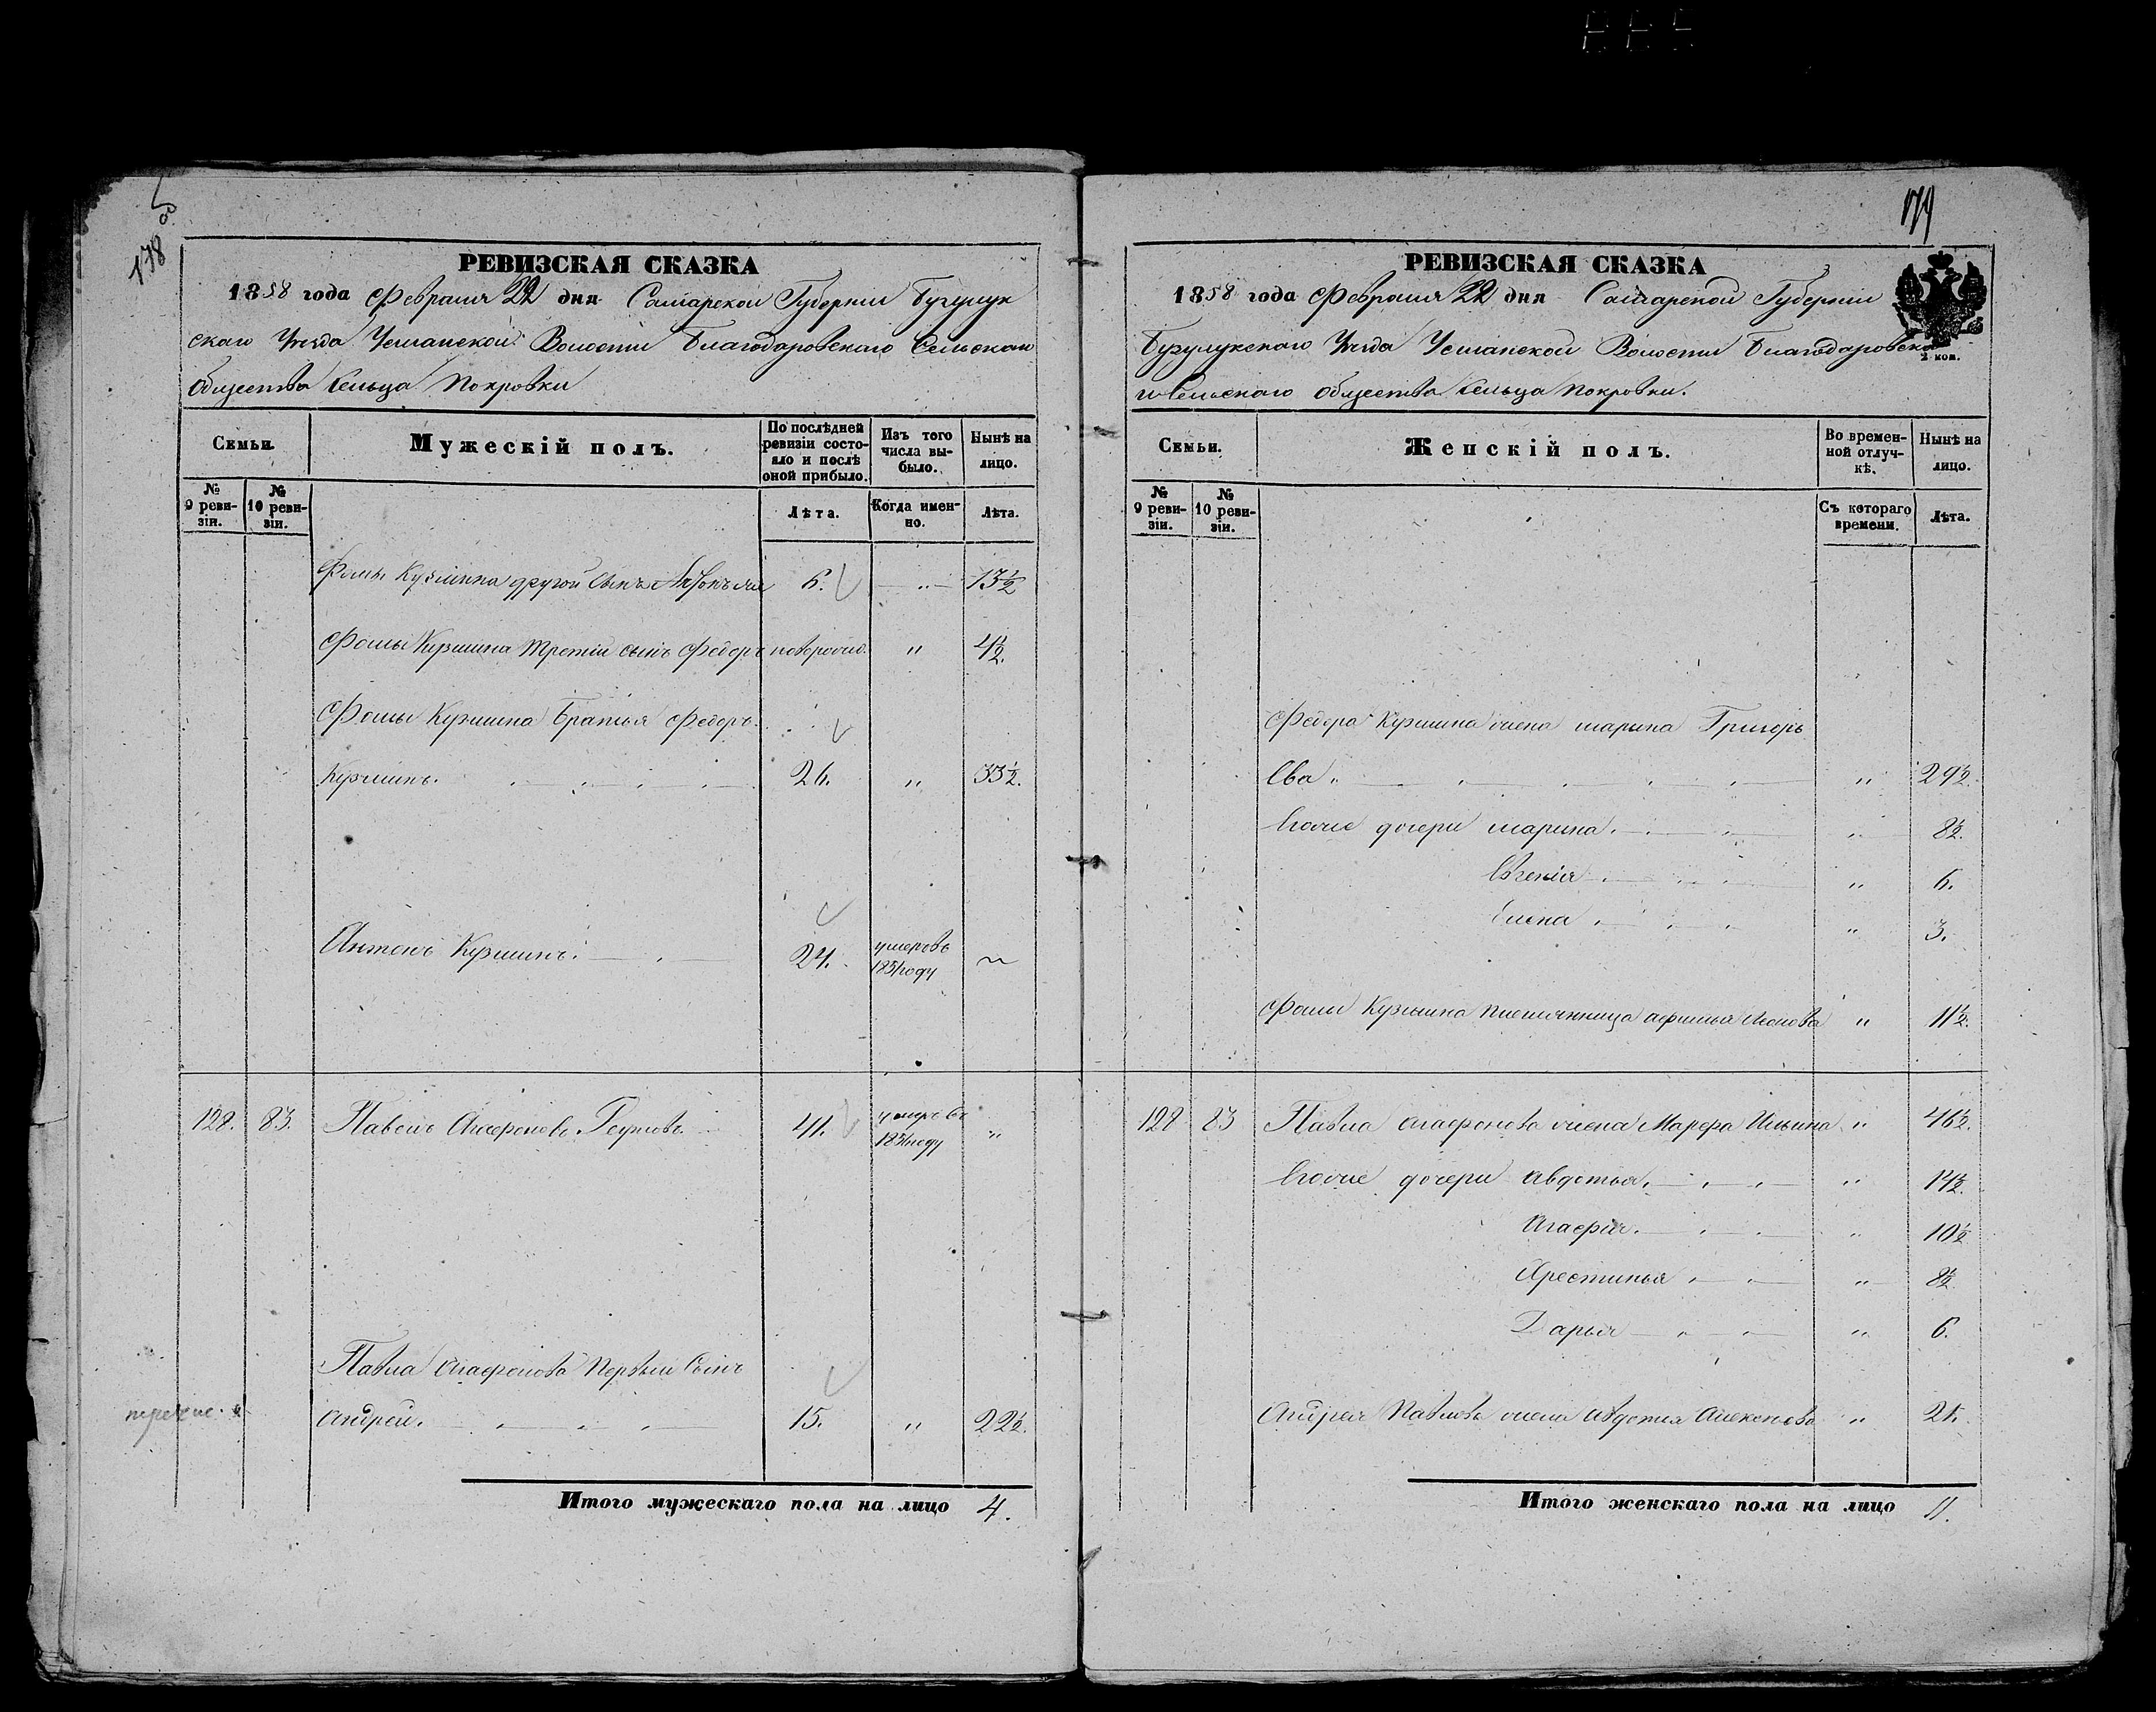 178 об
РЕВИЗСКАЯ СКАЗКА
1858 года Февраля 22 дня Самарской Губернии Бузулук
скаго Уезда Усманской Волости Благодаровскаго Сельскаго
Общества Сельца Покровки
Семьи.
Мужескій полъ.
По послѣдней ревизіи состояло и послѣ оной прибыло.
Изъ того числа выбыло.
Нынѣ на лицо.
№ 9 ревизіи.
№ 10 ревизіи.
Лѣта.
Когда именно.
Лѣта.
Фомы Кузмина другой Сынъ 6. „ 13½
Фомы Кузмина Третій сынъ Федоръ новорожд. „ 4½.
Фомы Кузмина Братья Федоръ
Кузминъ. 26. „ 33½.
Антонъ Кузминъ. 24. умеръ въ
1851 году
128. 83. Павелъ Агафоновъ 41. умеръ въ „
1851 году
Павла Агафонова Первый Сынъ
Андрей. 15. „ 22½.
Итого мужескаго пола на лицо 4.
179
РЕВИЗСКАЯ СКАЗКА
1858 года Февраля 22 дня Самарской Губерніи
Бузулукскаго Уезда Усманской Волости Благодаровска
го Сельскаго общества Сельца Покровки.
2 коп.
Семьи.
Женскій полъ.
Во временной отлучкѣ.
Нынѣ на лицо.
№ 9 ревизіи.
№ 10 ревизіи.
Съ котораго времени.
Лѣта.
Федора Кузмина жена марина Григорь
Ева „ „ 29½.
Егоже дочери марина. „ 8½.
Евгенія „ 6.
Елена „ 3.
Фомы Кузмина племянница афимья „ 11½.
128 83 Павла Агафонова жена Марфа Ильина „ 46½.
Егоже дочери авдотья. „ 14½.
Агафья. „ 10½
Хрестинья „ 8½.
Дарья „ 6.
Андрея Павлова жена авдотья „ 21.
Итого женскаго пола на лицо 11.